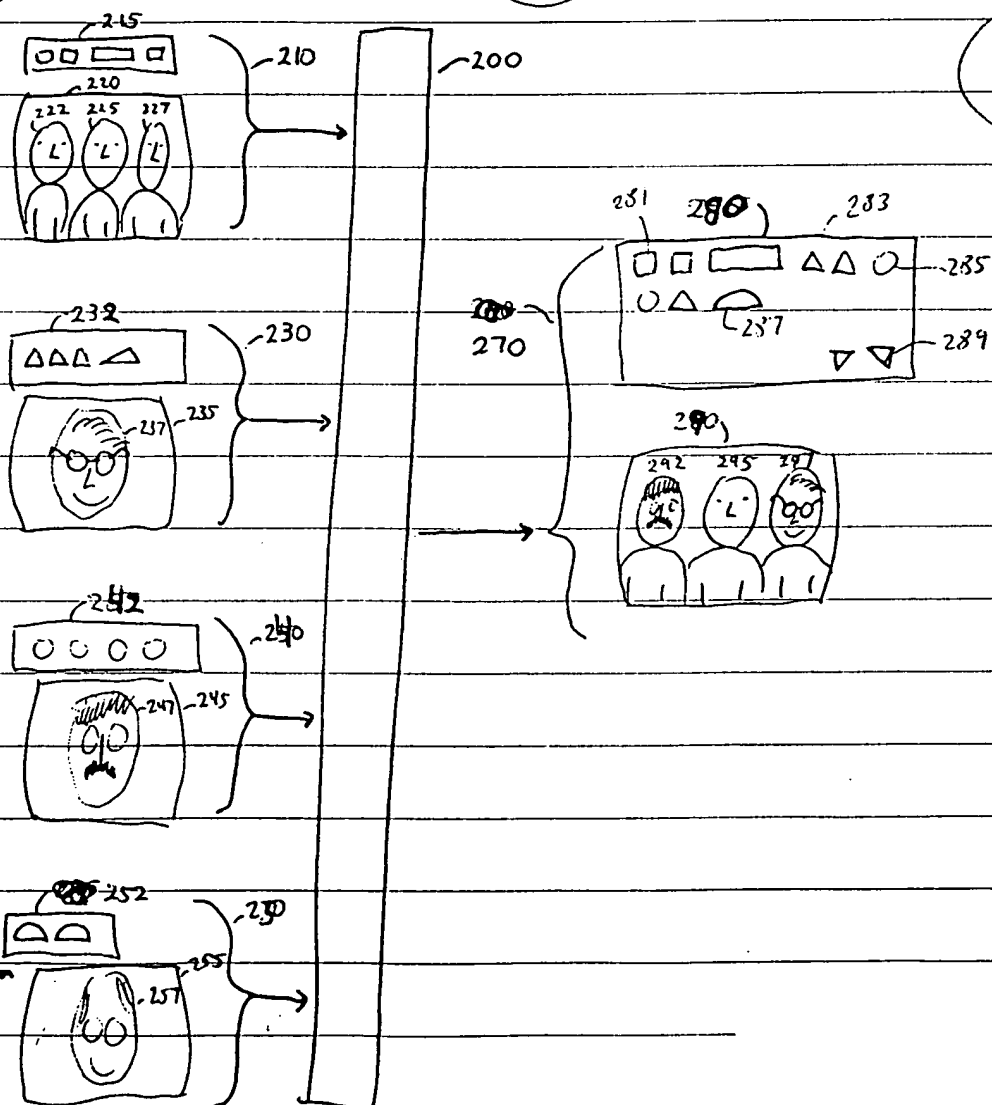 215
210
200
220
222 225 227
281 280 283
285
287
289
232
230
270
237 235
290
292 295 297
242
240
247 245
252
250
255
257